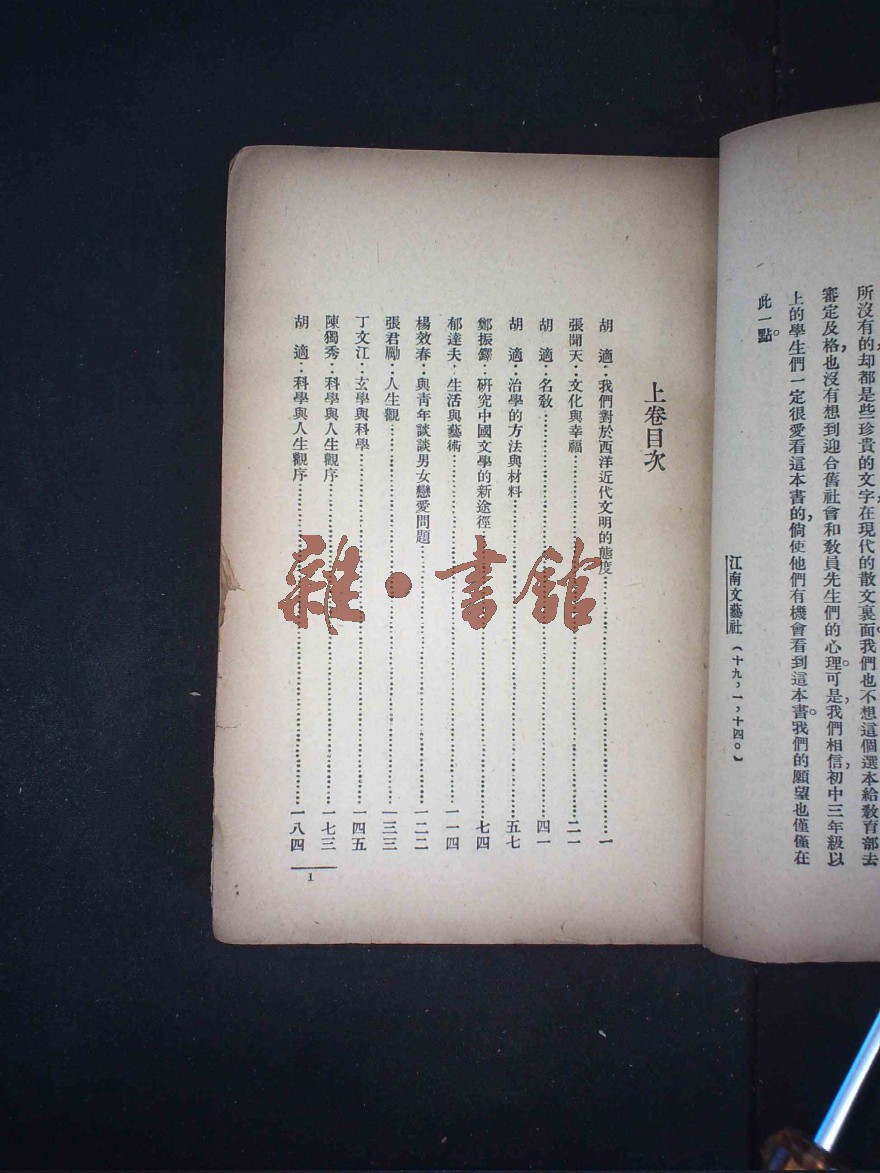 所沒有的，却都是些珍貴的文字在現代的散文裏面。我們也不想這個選本給教育部去
審定及格，也沒有想到迎合舊社會和教員先生們的心理。可是，我們相信，初中三年級以
上的學生們一定很愛看這本書的，倘使他們有機會看到這本書。我們的願望也僅僅在
此一點。
江南文藝社（十九，一，十四。）
上卷目次
胡　適：我們對於西洋近代文明的態度…………一
張聞天：文化與幸福…………二一
胡　適：名教…………四一
胡　適：治學的方法與材料…………五七
鄭振鐸：研究中國文學的新途徑…………七四
郁達夫：生活與藝術…………一一四
楊效春：與青年談談男女戀愛問題…………一二二
張君勵：人生觀…………一三三
丁文江：玄學與科學…………一四五
陳獨秀：科學與人生觀序…………一七三
胡　適：科學與人生觀序…………一八四
1
雜·書館